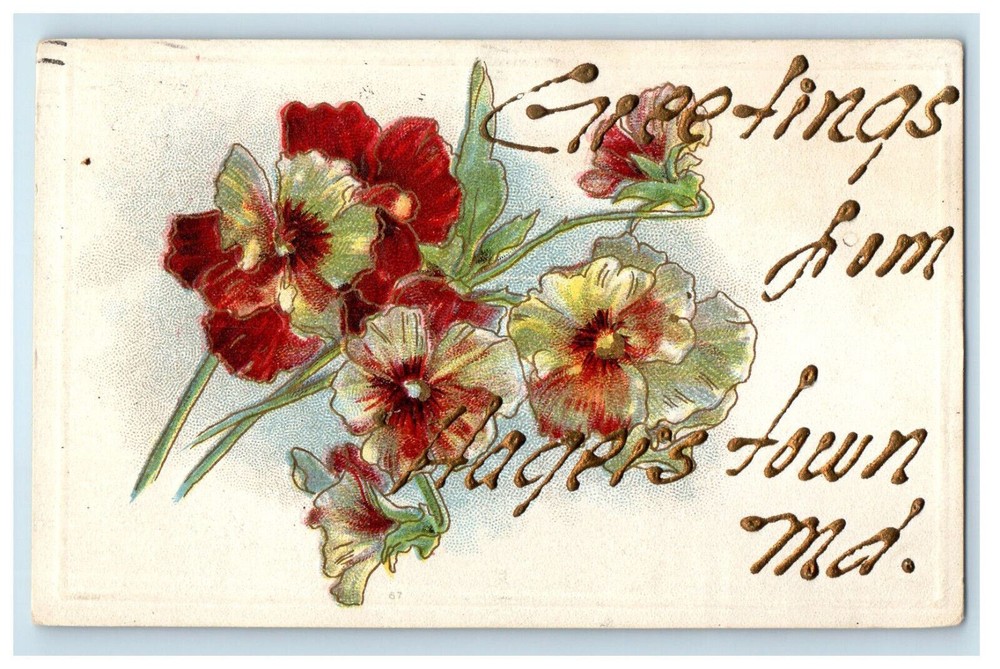 Greetings
from
Hagers town
Md.
67